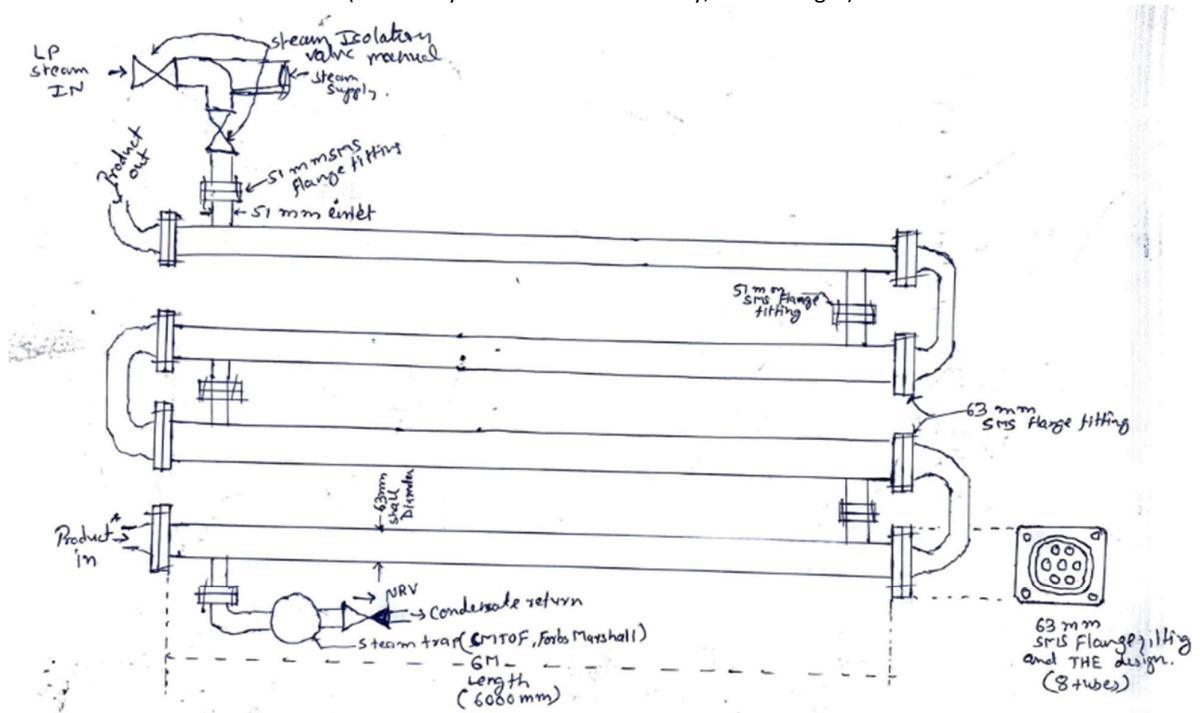 LP
steam
IN
steam Isolation
valve manual
steam
supply.
Product
out
51 mm SMS
flange fitting
51 mm inlet
51 mm
SMS flange
fitting
63 mm
SMS flange fitting
63mm
shell
Diameter
Product
in
NRV
Condensate return
Steam trap (SMTOF, Forbs Marshall)
6M
Length
(6000mm)
63 mm
SMS Flange fitting
and THE design.
(8 tubes)